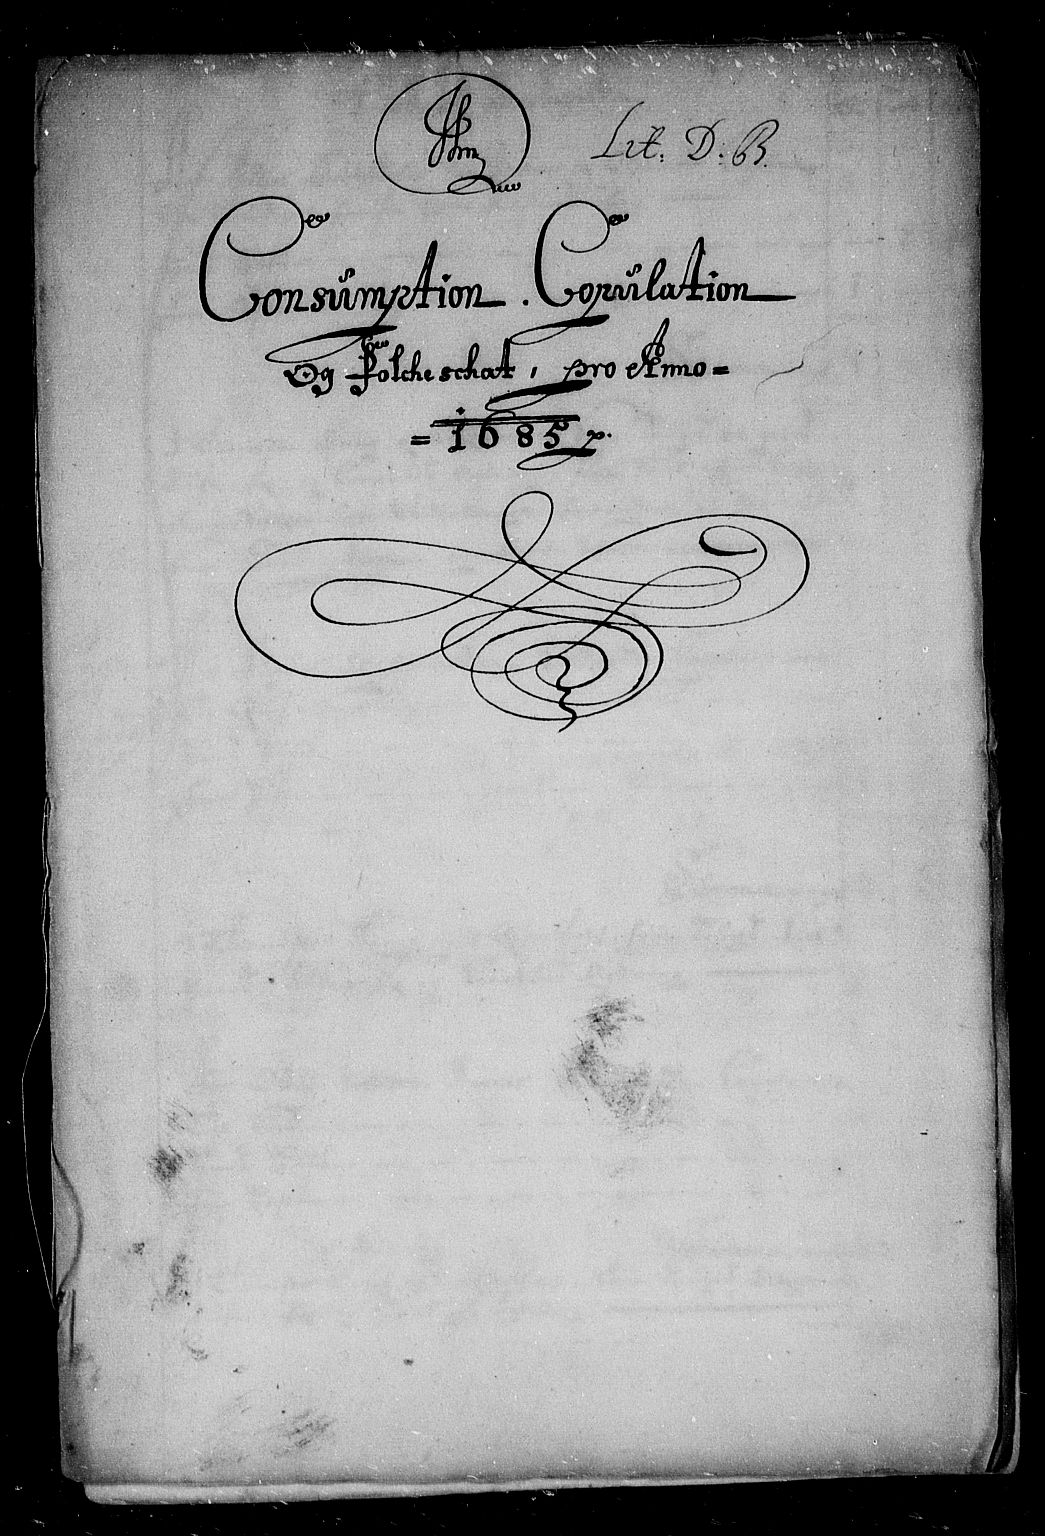 Lit. D. B.
Consumption. Copulation
Og Folcheschat, pro Anno=
= 1685